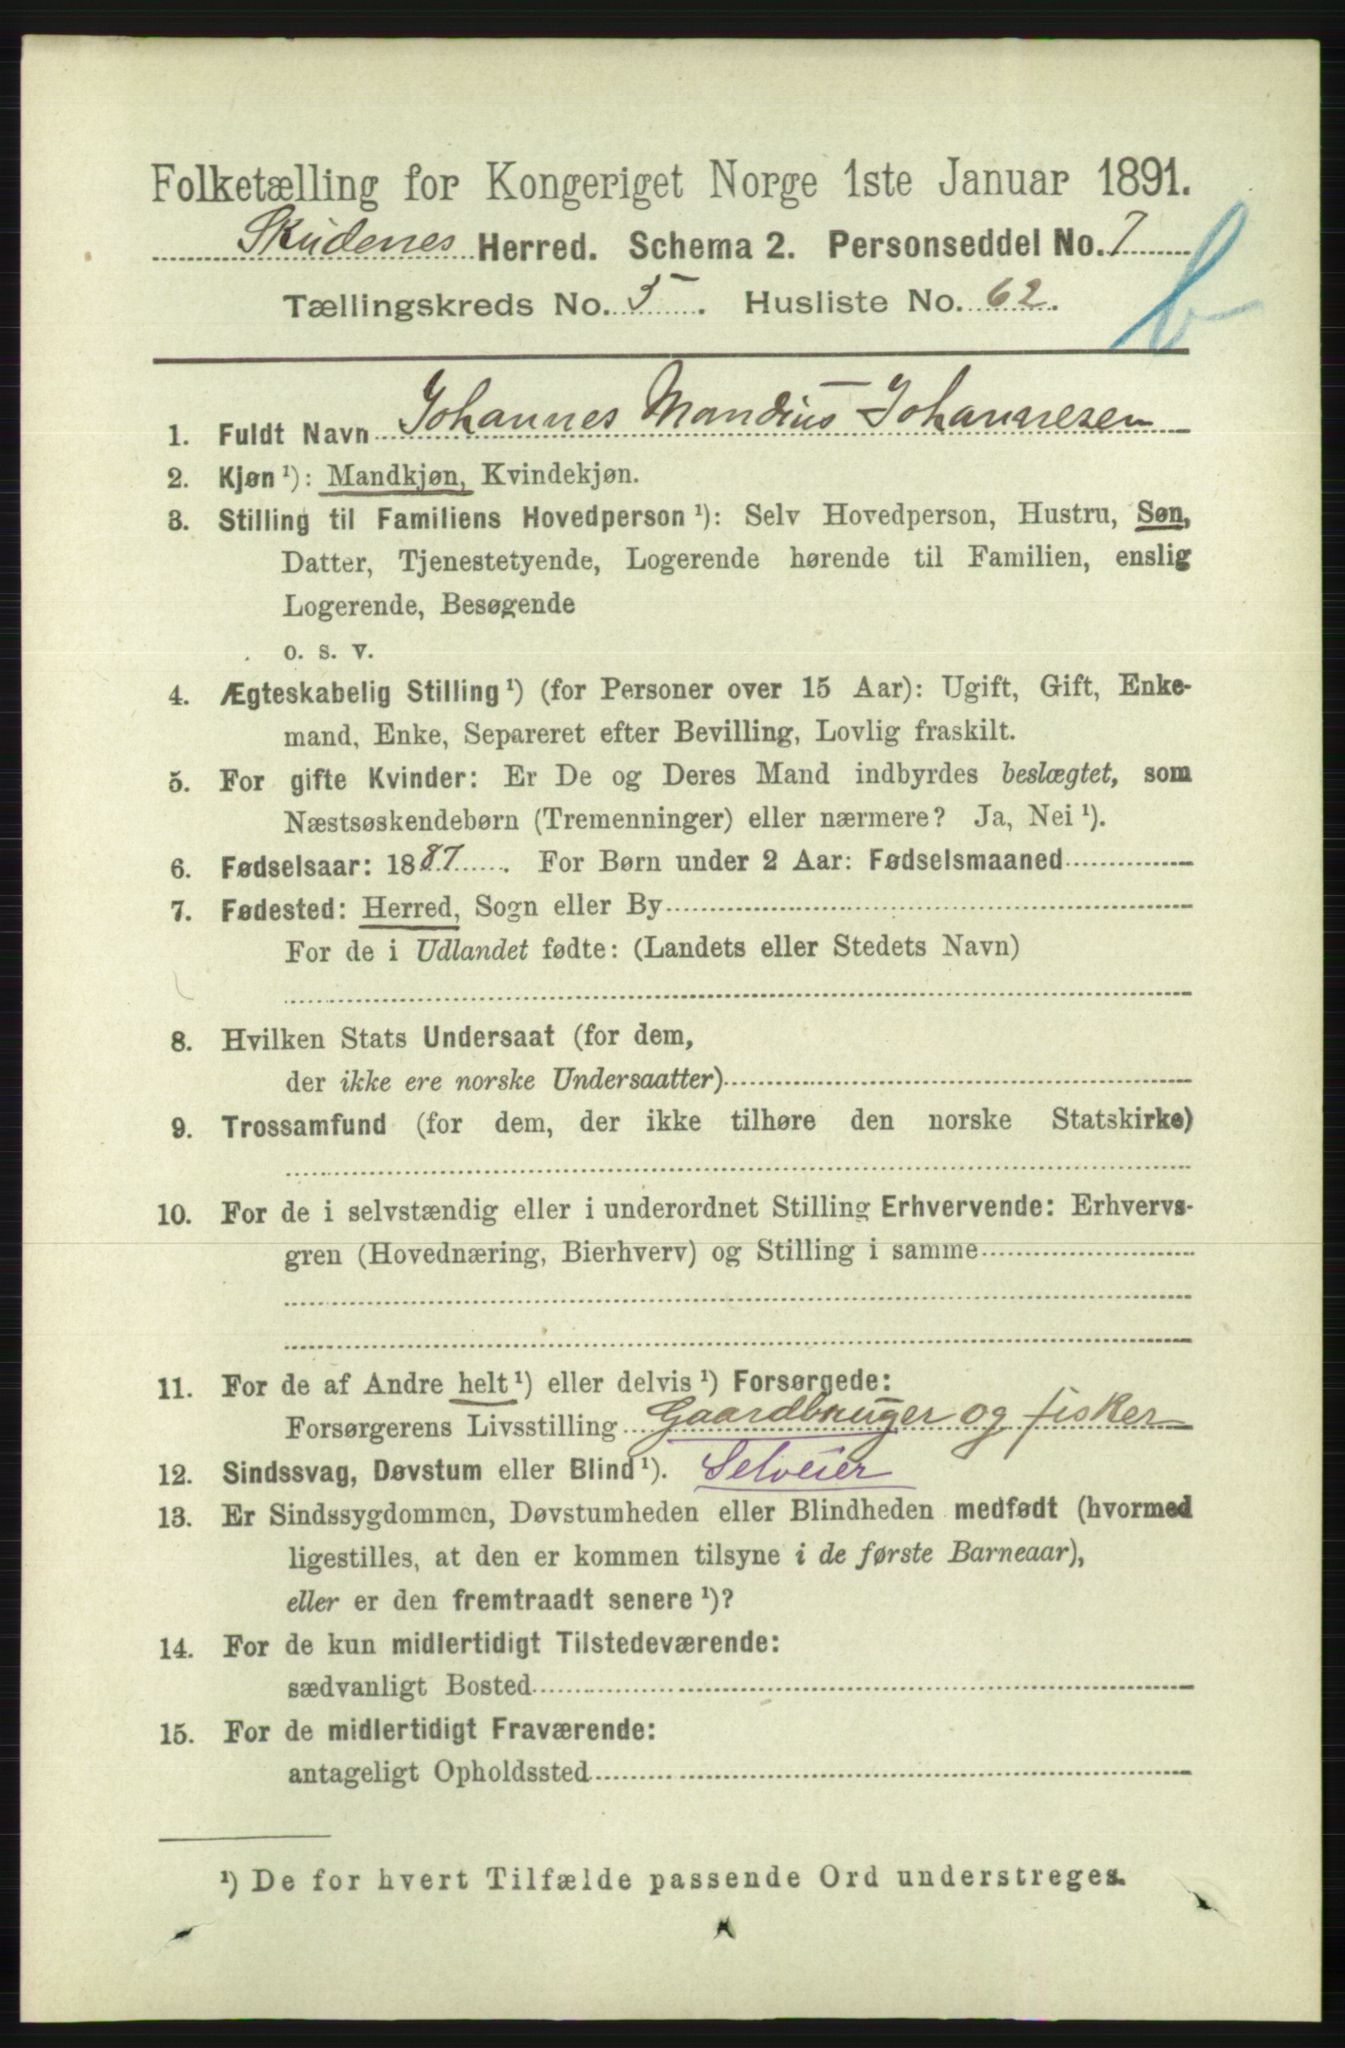 Folketælling for Kongeriget Norge 1ste Januar 1891.
Skudenes Herred. Schema 2. Personseddel No. 7
b
Tællingskreds No. 5. Husliste No. 62.
1. Fuldt Navn Johannes Mandius Johannesen
2. Kjøn ¹): Mandkjøn, Kvindekjøn.
3. Stilling til Familiens Hovedperson ¹): Selv Hovedperson, Hustru, Søn,
Datter, Tjenestetyende, Logerende hørende til Familien, enslig
Logerende, Besøgende
o. s. v.
4. Ægteskabelig Stilling ¹) (for Personer over 15 Aar): Ugift, Gift, Enke-
mand, Enke, Separeret efter Bevilling, Lovlig fraskilt.
5. For gifte Kvinder: Er De og Deres Mand indbyrdes beslægtet, som
Næstsøskendebørn (Tremenninger) eller nærmere? Ja, Nei ¹).
6. Fødselsaar: 1887. For Børn under 2 Aar: Fødselsmaaned
7. Fødested: Herred, Sogn eller By
For de i Udlandet fødte: (Landets eller Stedets Navn)
8. Hvilken Stats Undersaat (for dem,
der ikke ere norske Undersaatter)
9. Trossamfund (for dem, der ikke tilhøre den norske Statskirke)
10. For de i selvstændig eller i underordnet Stilling Erhvervende: Erhvervs-
gren (Hovednæring, Bierhverv) og Stilling i samme
11. For de af Andre helt ¹) eller delvis ¹) Forsørgede:
Forsørgerens Livsstilling Gaardbruger og fisker
12. Sindssvag, Døvstum eller Blind ¹). Selveier
13. Er Sindssygdommen, Døvstumheden eller Blindheden medfødt (hvormed
ligestilles, at den er kommen tilsyne i de første Barneaar),
eller er den fremtraadt senere ¹)?
14. For de kun midlertidigt Tilstedeværende:
sædvanligt Bosted
15. For de midlertidigt Fraværende:
antageligt Opholdssted
¹) De for hvert Tilfælde passende Ord understreges.